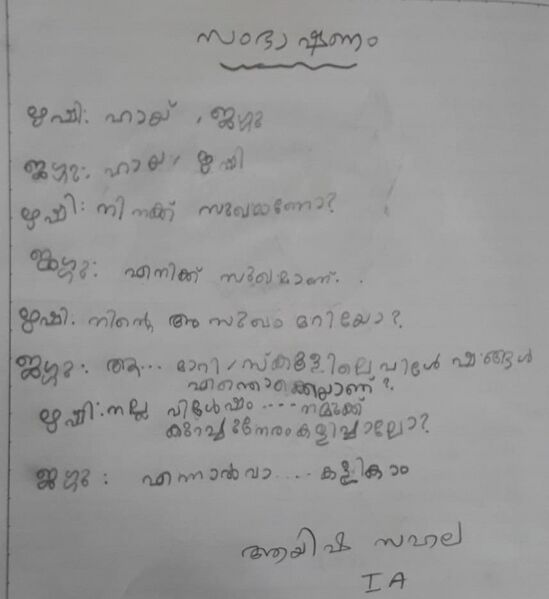 സംഭാഷണം
ഋഷി: ഹായ് , ജഗ്ഗു
ജഗ്ഗു: ഹായ്, ഋഷി
ഋഷി: നിനക്ക് സുഖമാണോ?
ജഗ്ഗു: എനിക്ക് സുഖമാണ്. .
ഋഷി: നിന്റെ അസുഖം മാറിയോ?
ജഗ്ഗു: ആ... മാറി, സ്കൂളിലെ വിശേഷങ്ങൾ
എന്തൊക്കെയാണ്?
ഋഷി: നല്ല വിശേഷം .... നമുക്ക്
കുറച്ചുനേരം കളിച്ചാലോ?
ജഗ്ഗു : എന്നാൽ വാ .... കളികാം
ആയിഷ സഹല
I A